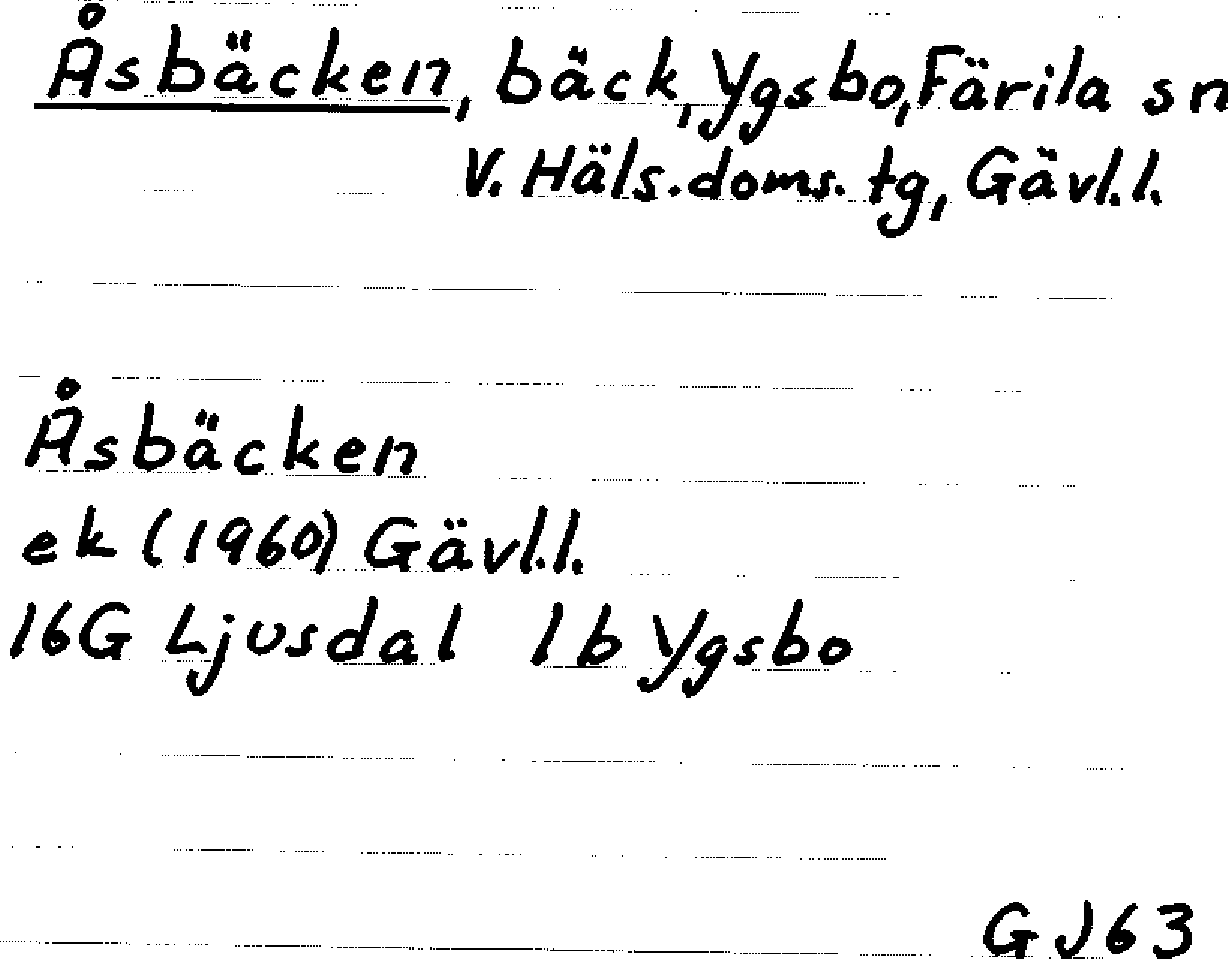 Åsbäcken, bäck, Ygsbo, Färila sn
V. Häls. doms. tg, Gävl.l.
Åsbäcken
ek (1960) Gävl.l.
16G Ljusdal 1b Ygsbo
GJ63